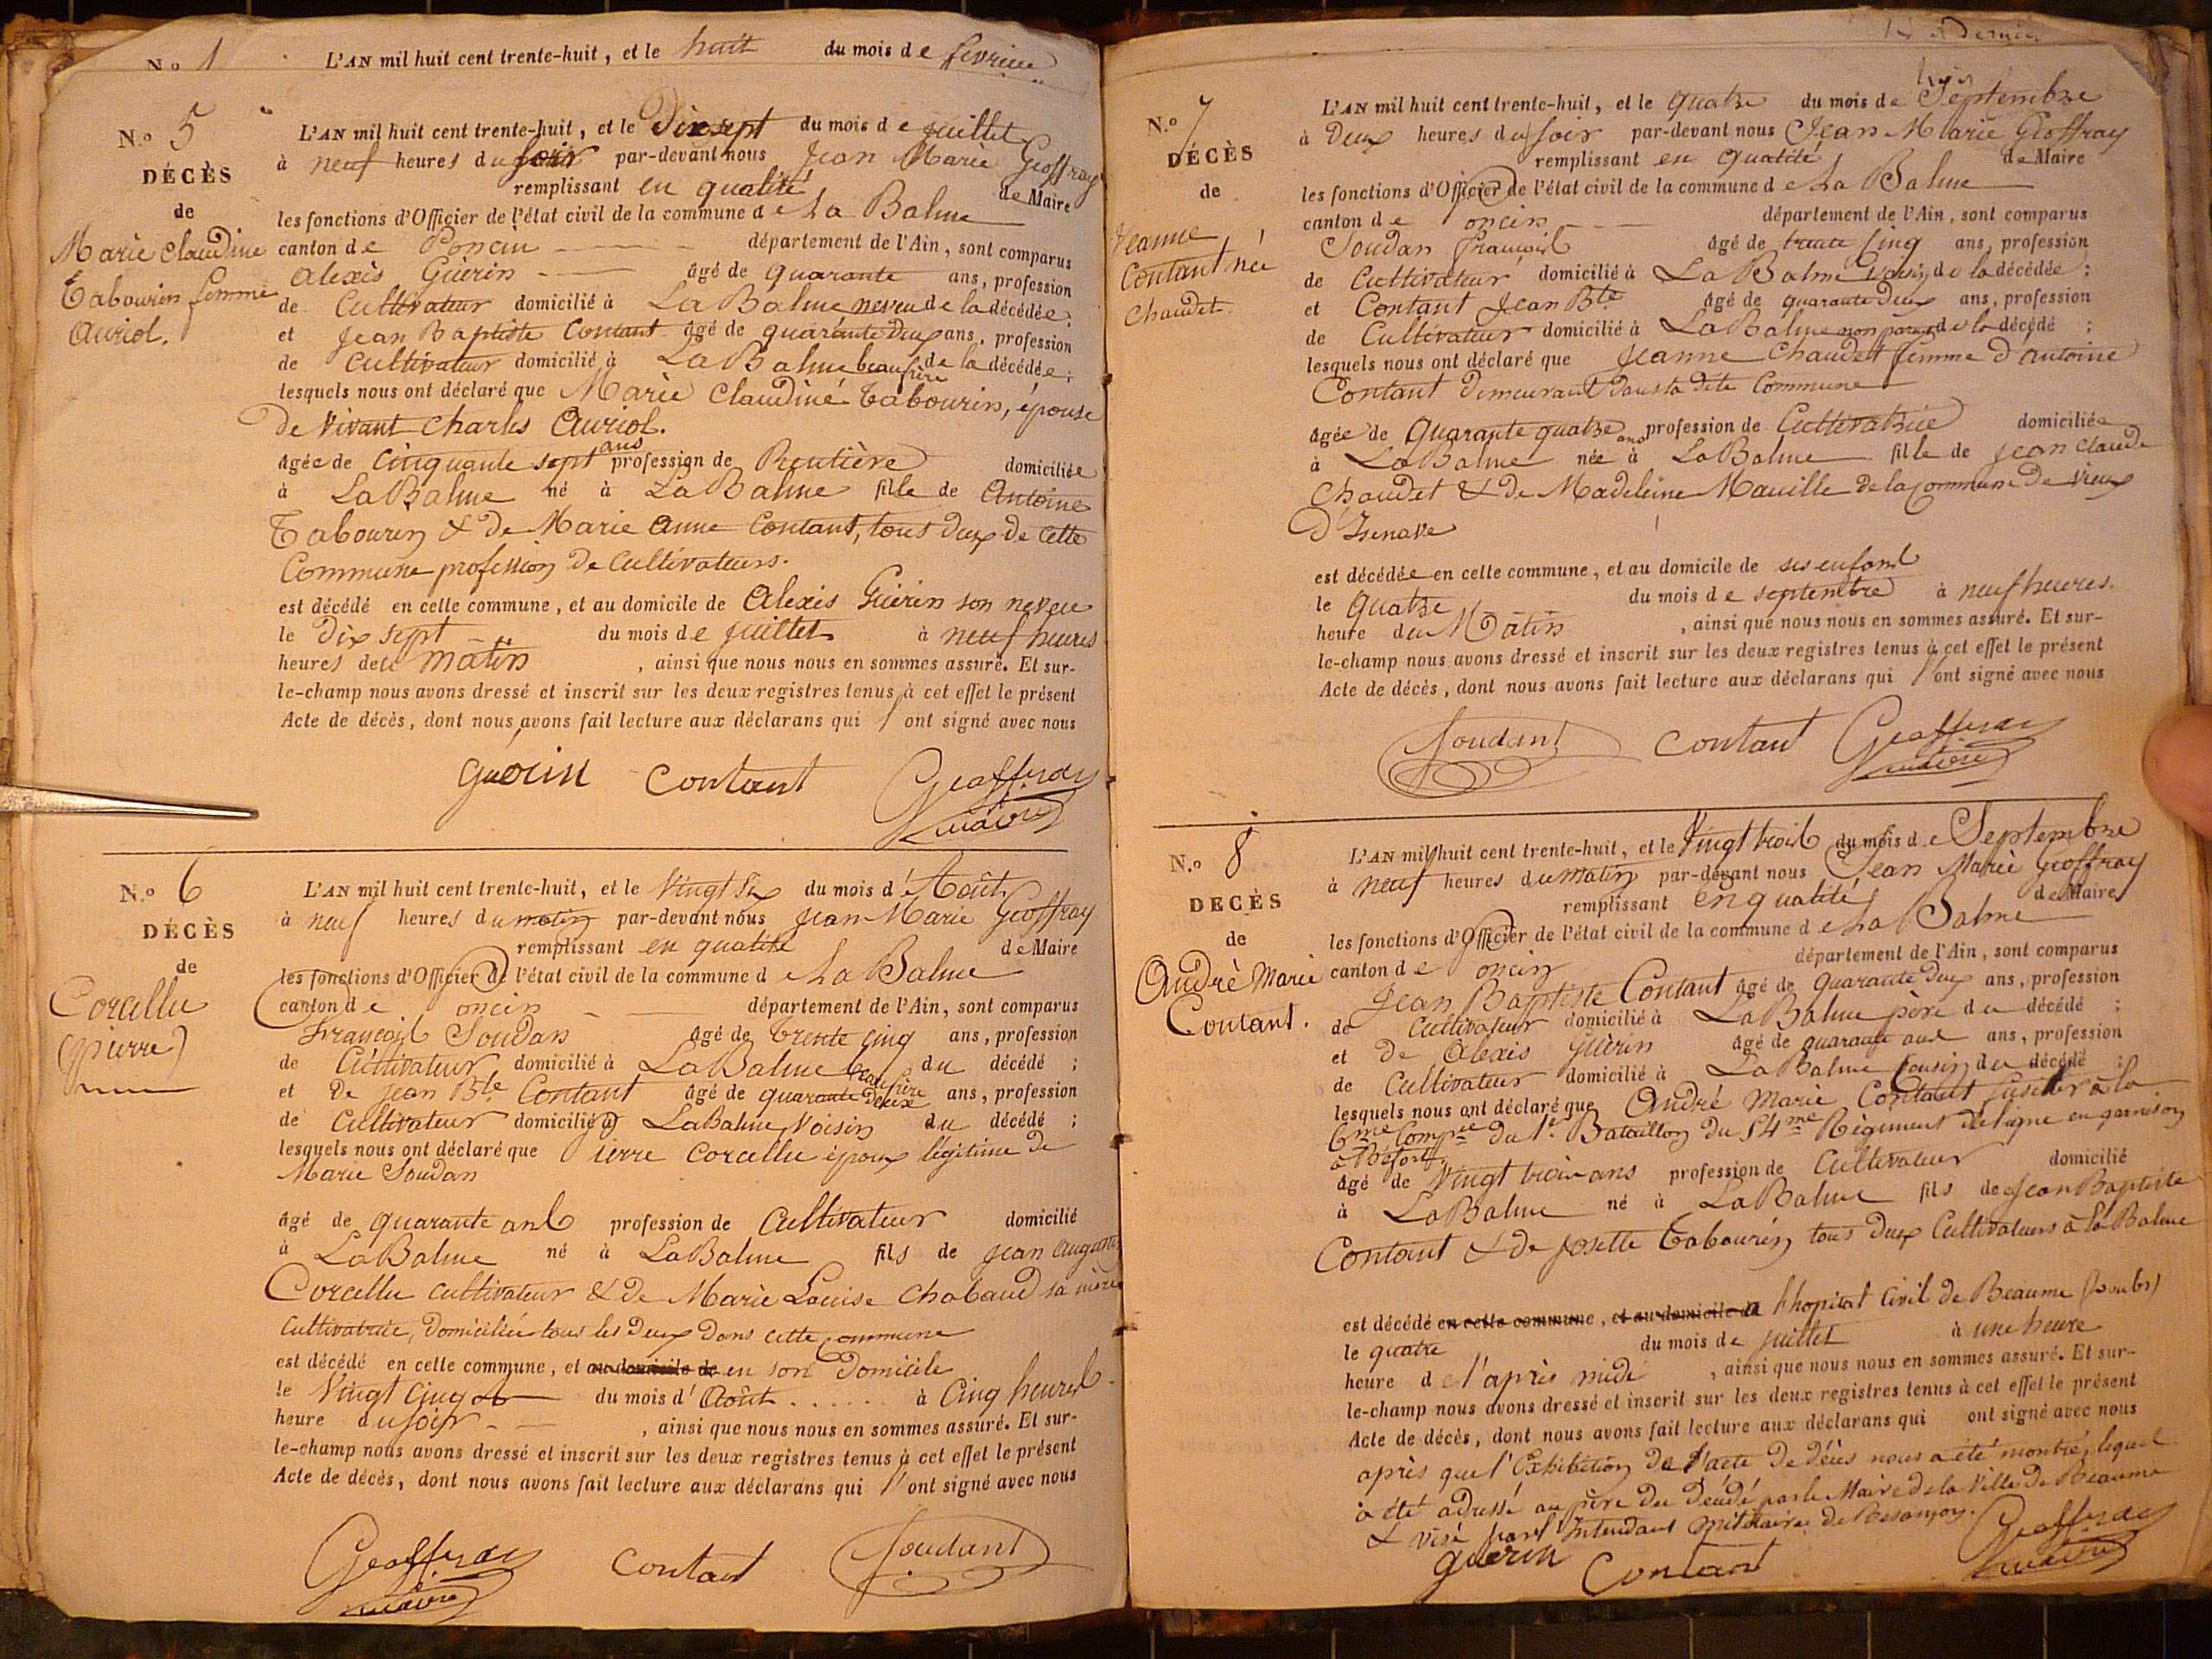 N.o 1 L'AN mil huit cent trente-huit, et le huit du mois de fevrier
N.o 5
DÉCÈS
de
Marie Claudine
Tabourin femme
Auriol.
L'AN mil huit cent trente-huit, et le Dix sept du mois de juillet
à neuf heures du soir par-devant nous Jean Marie Geoffray
remplissant en qualité de Maire
les fonctions d'Officier de l'état civil de la commune de La Balme
canton de Poncin département de l'Ain, sont comparus
Alexis Guérin âgé de quarante ans, profession
de Cultivateur domicilié à La Balme neveu de la décédée;
et Jean Baptiste Contant âgé de quarante Deux ans, profession
de Cultivateur domicilié à La Balme beau frère de la décédée;
lesquels nous ont déclaré que Marie Claudine Tabourin, épouse
De Vivant Charles Auriol.
âgée de Cinquante sept ans profession de Rentière domiciliée
à La Balme né à La Balme fille de Antoine
Tabourin & de Marie Anne Contant, tous deux de cette
Commune profession de Cultivateurs.
est décédé en cette commune, et au domicile de Alexis Guérin son neveu
le Dix sept du mois de juillet à neuf heures
heures de matin, ainsi que nous nous en sommes assuré. Et sur-
le-champ nous avons dressé et inscrit sur les deux registres tenus à cet effet le présent
Acte de décès, dont nous avons fait lecture aux déclarans qui l'ont signé avec nous
Guérin Contant Geoffray
maire
N.o 6
DÉCÈS
de
Corcellu
(pierre)
L'AN mil huit cent trente-huit, et le Vingt Six du mois d'Août
à neuf heures du matin par-devant nous Jean Marie Geoffray
remplissant en qualité de Maire
les fonctions d'Officier de l'état civil de la commune de La Balme
canton de Poncin département de l'Ain, sont comparus
François Soudan âgé de Trente cinq ans, profession
de Cultivateur domicilié à La Balme beau frère du décédé;
et De Jean Bte Contant âgé de quarante Deux ans, profession
de Cultivateur domicilié à La Balme Voisin du décédé;
lesquels nous ont déclaré que Pierre Corcellu époux légitime de
Marie Soudan
âgé de quarante ans profession de Cultivateur domicilié
à La Balme né à La Balme fils de Jean
Corcellu Cultivateur & de Marie Louise Chabaud sa mère
Cultivatrice, domiciliée tous les Deux Dans cette Commune
est décédé en cette commune, et au domicile de en son Domicile
le Vingt Cinq du mois d'Août . . . . . . à Cinq heures
heure du soir, ainsi que nous nous en sommes assuré. Et sur-
le-champ nous avons dressé et inscrit sur les deux registres tenus à cet effet le présent
Acte de décès, dont nous avons fait lecture aux déclarans qui l'ont signé avec nous
Geoffray Contant Soudant
maire
Dernier
N.o 7
DÉCÈS
de
Jeanne
Contant née
Chaudet.
L'AN mil huit cent trente-huit, et le Quatre du mois de Septembre
à Deux heures du soir par-devant nous Jean Marie Geoffray
remplissant en qualité de Maire
les fonctions d'Officier de l'état civil de la commune de La Balme
canton de Poncin département de l'Ain, sont comparus
Soudan François âgé de trente Cinq ans, profession
de Cultivateur domicilié à La Balme voisin de la décédée;
et Contant Jean Bte âgé de quarante Deux ans, profession
de Cultivateur domicilié à La Balme non parent de la décédé;
lesquels nous ont déclaré que Jeanne Chaudet femme d'Antoine
Contant Demeurant Dans la dite Commune
âgée de Quarante quatre ans profession de Cultivatrice domiciliée
à La Balme née à La Balme fille de Jean Claude
Chaudet & de Madeleine Mauille de la Commune De Vieux
D'Isenave
est décédée en cette commune, et au domicile de ses enfant
le Quatre du mois de septembre à neuf heures.
heure du Matin, ainsi que nous nous en sommes assuré. Et sur-
le-champ nous avons dressé et inscrit sur les deux registres tenus à cet effet le présent
Acte de décès, dont nous avons fait lecture aux déclarans qui l'ont signé avec nous
Soudant Contant Geoffray
maire
N.o 8
DÉCÈS
de
André Marie
Contant.
L'AN mil huit cent trente-huit, et le Vingt trois du mois de Septembre
à neuf heures du matin par-devant nous Jean Marie Geoffray
remplissant en qualité de Maire
les fonctions d'Officier de l'état civil de la commune de La Balme
canton de Poncin département de l'Ain, sont comparus
Jean Baptiste Contant âgé de quarante Deux ans, profession
de Cultivateur domicilié à La Balme père du décédé;
et De Alexis Guérin âgé de quarante ans, profession
de Cultivateur domicilié à La Balme Cousin du décédé;
lesquels nous ont déclaré que André Marie Contant fusilier à la
6me Compie du 1r Bataillon du 54me Régiment de ligne en garnison
à Béfort,
âgé de Vingt trois ans profession de Cultivateur domicilié
à La Balme né à La Balme fils de Jean Baptiste
Contant & de Josette Tabourin tous Deux Cultivateurs à La Balme
est décédé en cette commune, et au domicile de à l'hopital Civil de Beaume (Doubs)
le quatre du mois de juillet à une heure
heure de l'après midi, ainsi que nous nous en sommes assuré. Et sur-
le-champ nous avons dressé et inscrit sur les deux registres tenus à cet effet le présent
Acte de décès, dont nous avons fait lecture aux déclarans qui ont signé avec nous
après que l'Exhibition De l'acte De décès nous a été montré, lequel
a été adressé au père Du Décédé par le Maire de la Ville De Beaume
& visé par l'Intendant Militaire De Besançon.
Guérin Contant Geoffray
maire